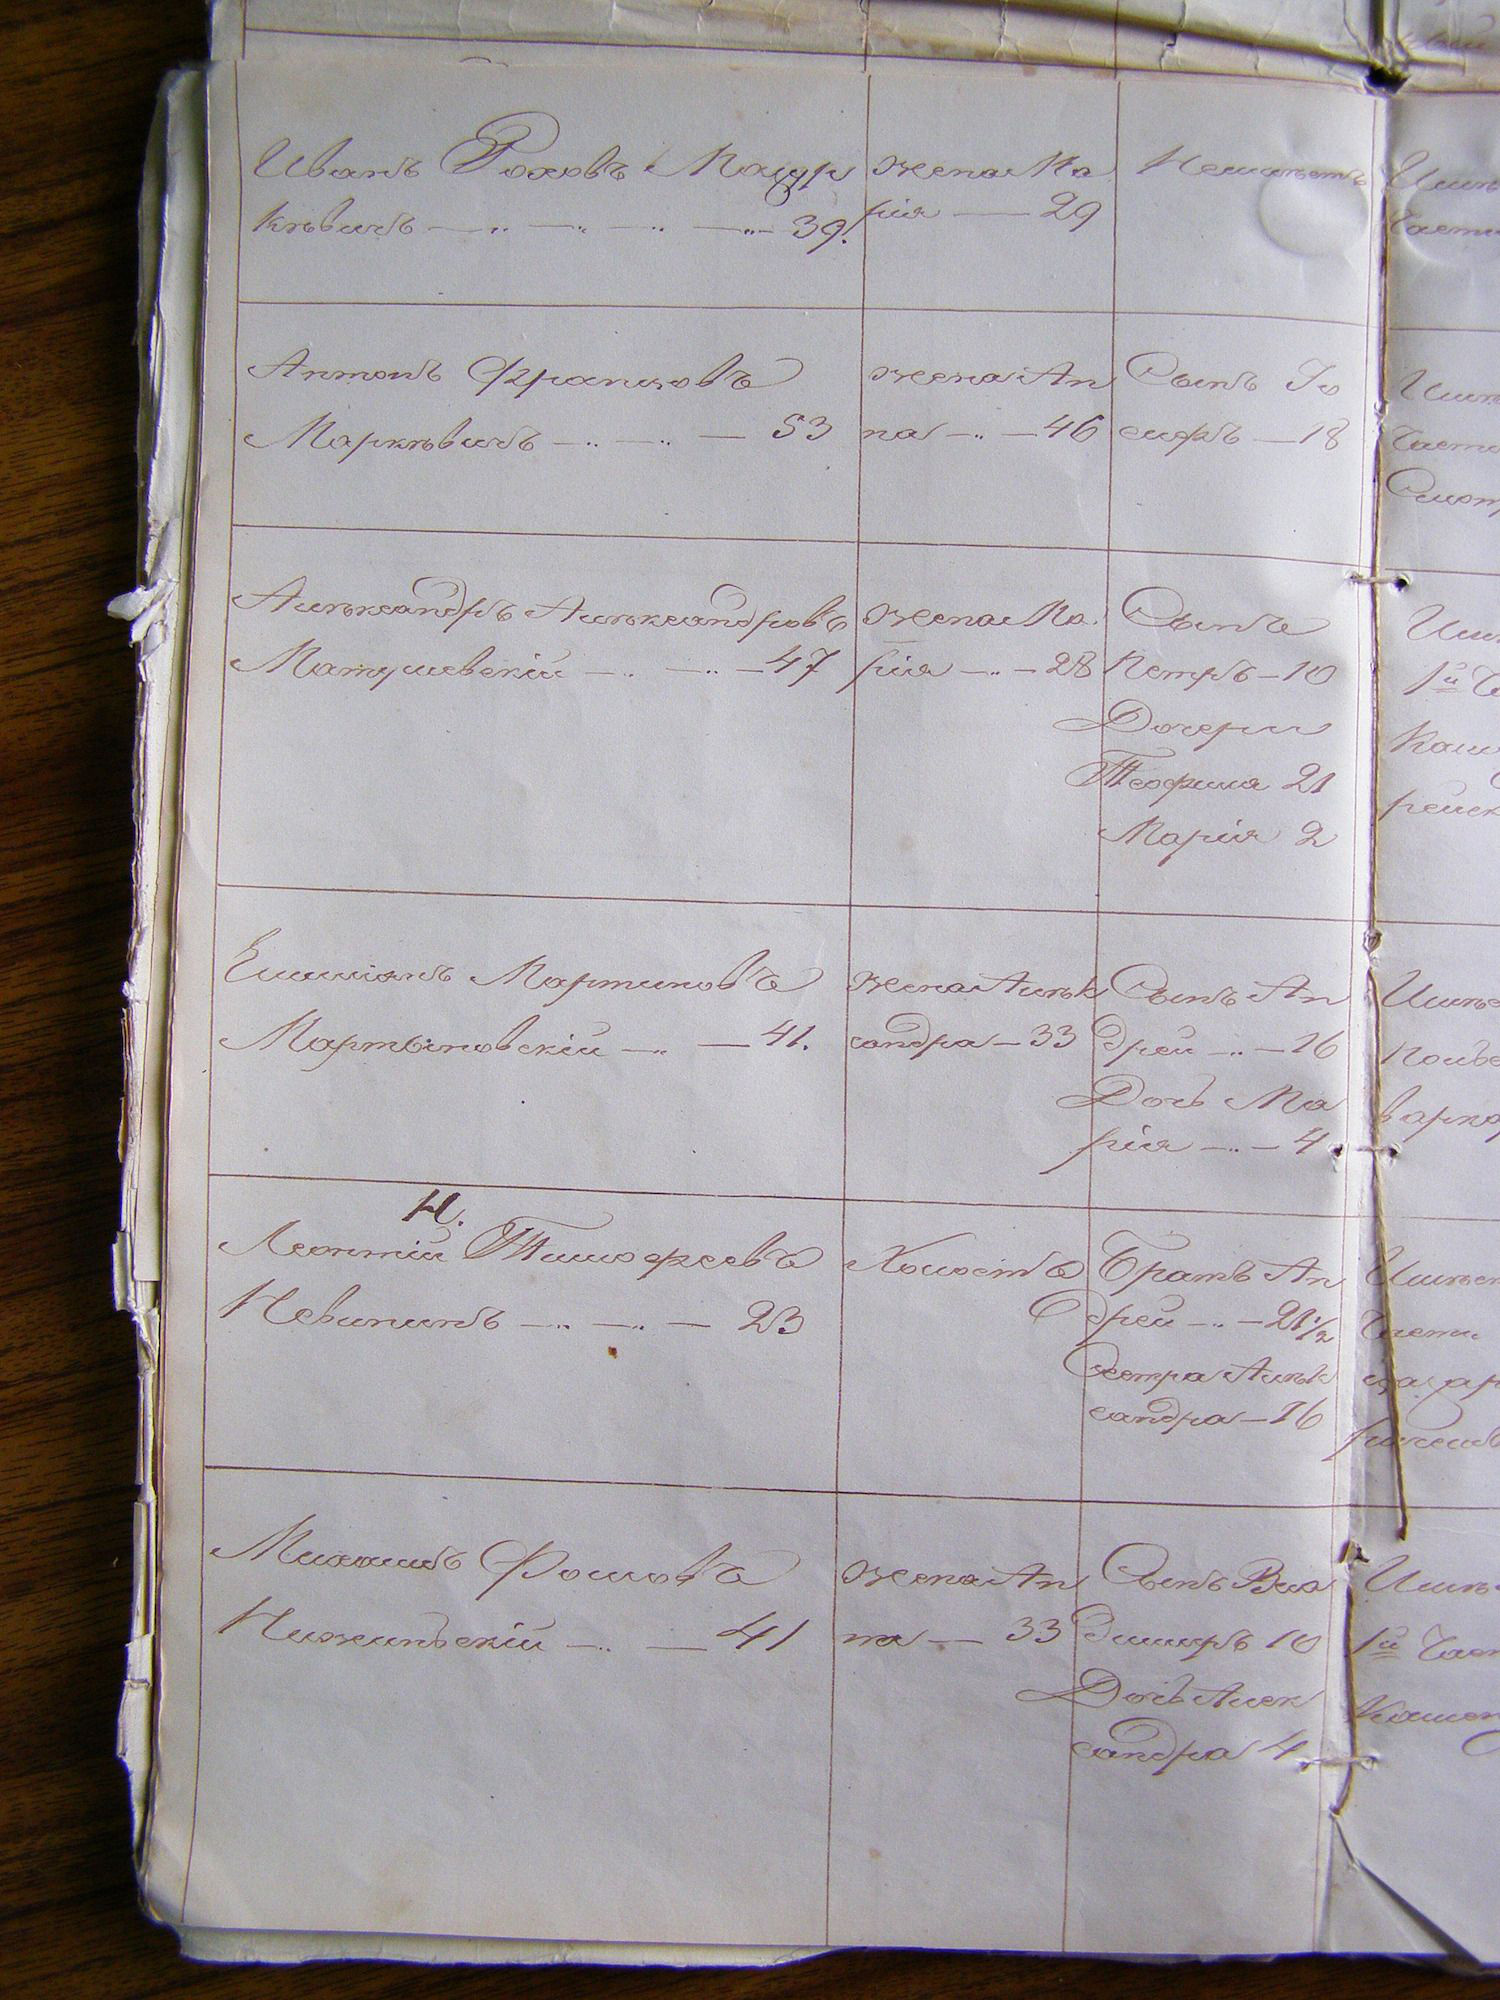 Иванъ Роховъ Мацу
кѣвичъ — „ — „ — „ — „ — 39.
жена Ма
рія — 29
Неимѣетъ
Антонъ Францовъ
Маркѣвичъ — „ — „ — 53
жена Ан
на — „ — 46
Сынъ Іо
сифъ — 18
Алѣксандръ Алѣксандровъ
Матушевскій — „ — „ — 47
жена Ма.
рія — „ — 28
Сынъ
Петръ — 10
Дочери
Теофиля 21
Марія 2
Емиліянъ Мартиновъ
Мартыновскій — „ — 41.
жена Алѣк
сандра — 33
Сынъ Ан
дрей — „ — 16
Дочь Ма
рія — „ — 4
Н.
Леонтій Тимофеевъ
Невининъ — „ — „ — 23
Холостъ
Братъ Ан
дрей — „ — 21 1/2
Сестра Алѣк
сандра — 16
Михаилъ Фомовъ
Нижинъскій — „ — 41
жена Ан
на — 33
Сынъ Вла
димиръ 10
Дочь Алек
сандра 4